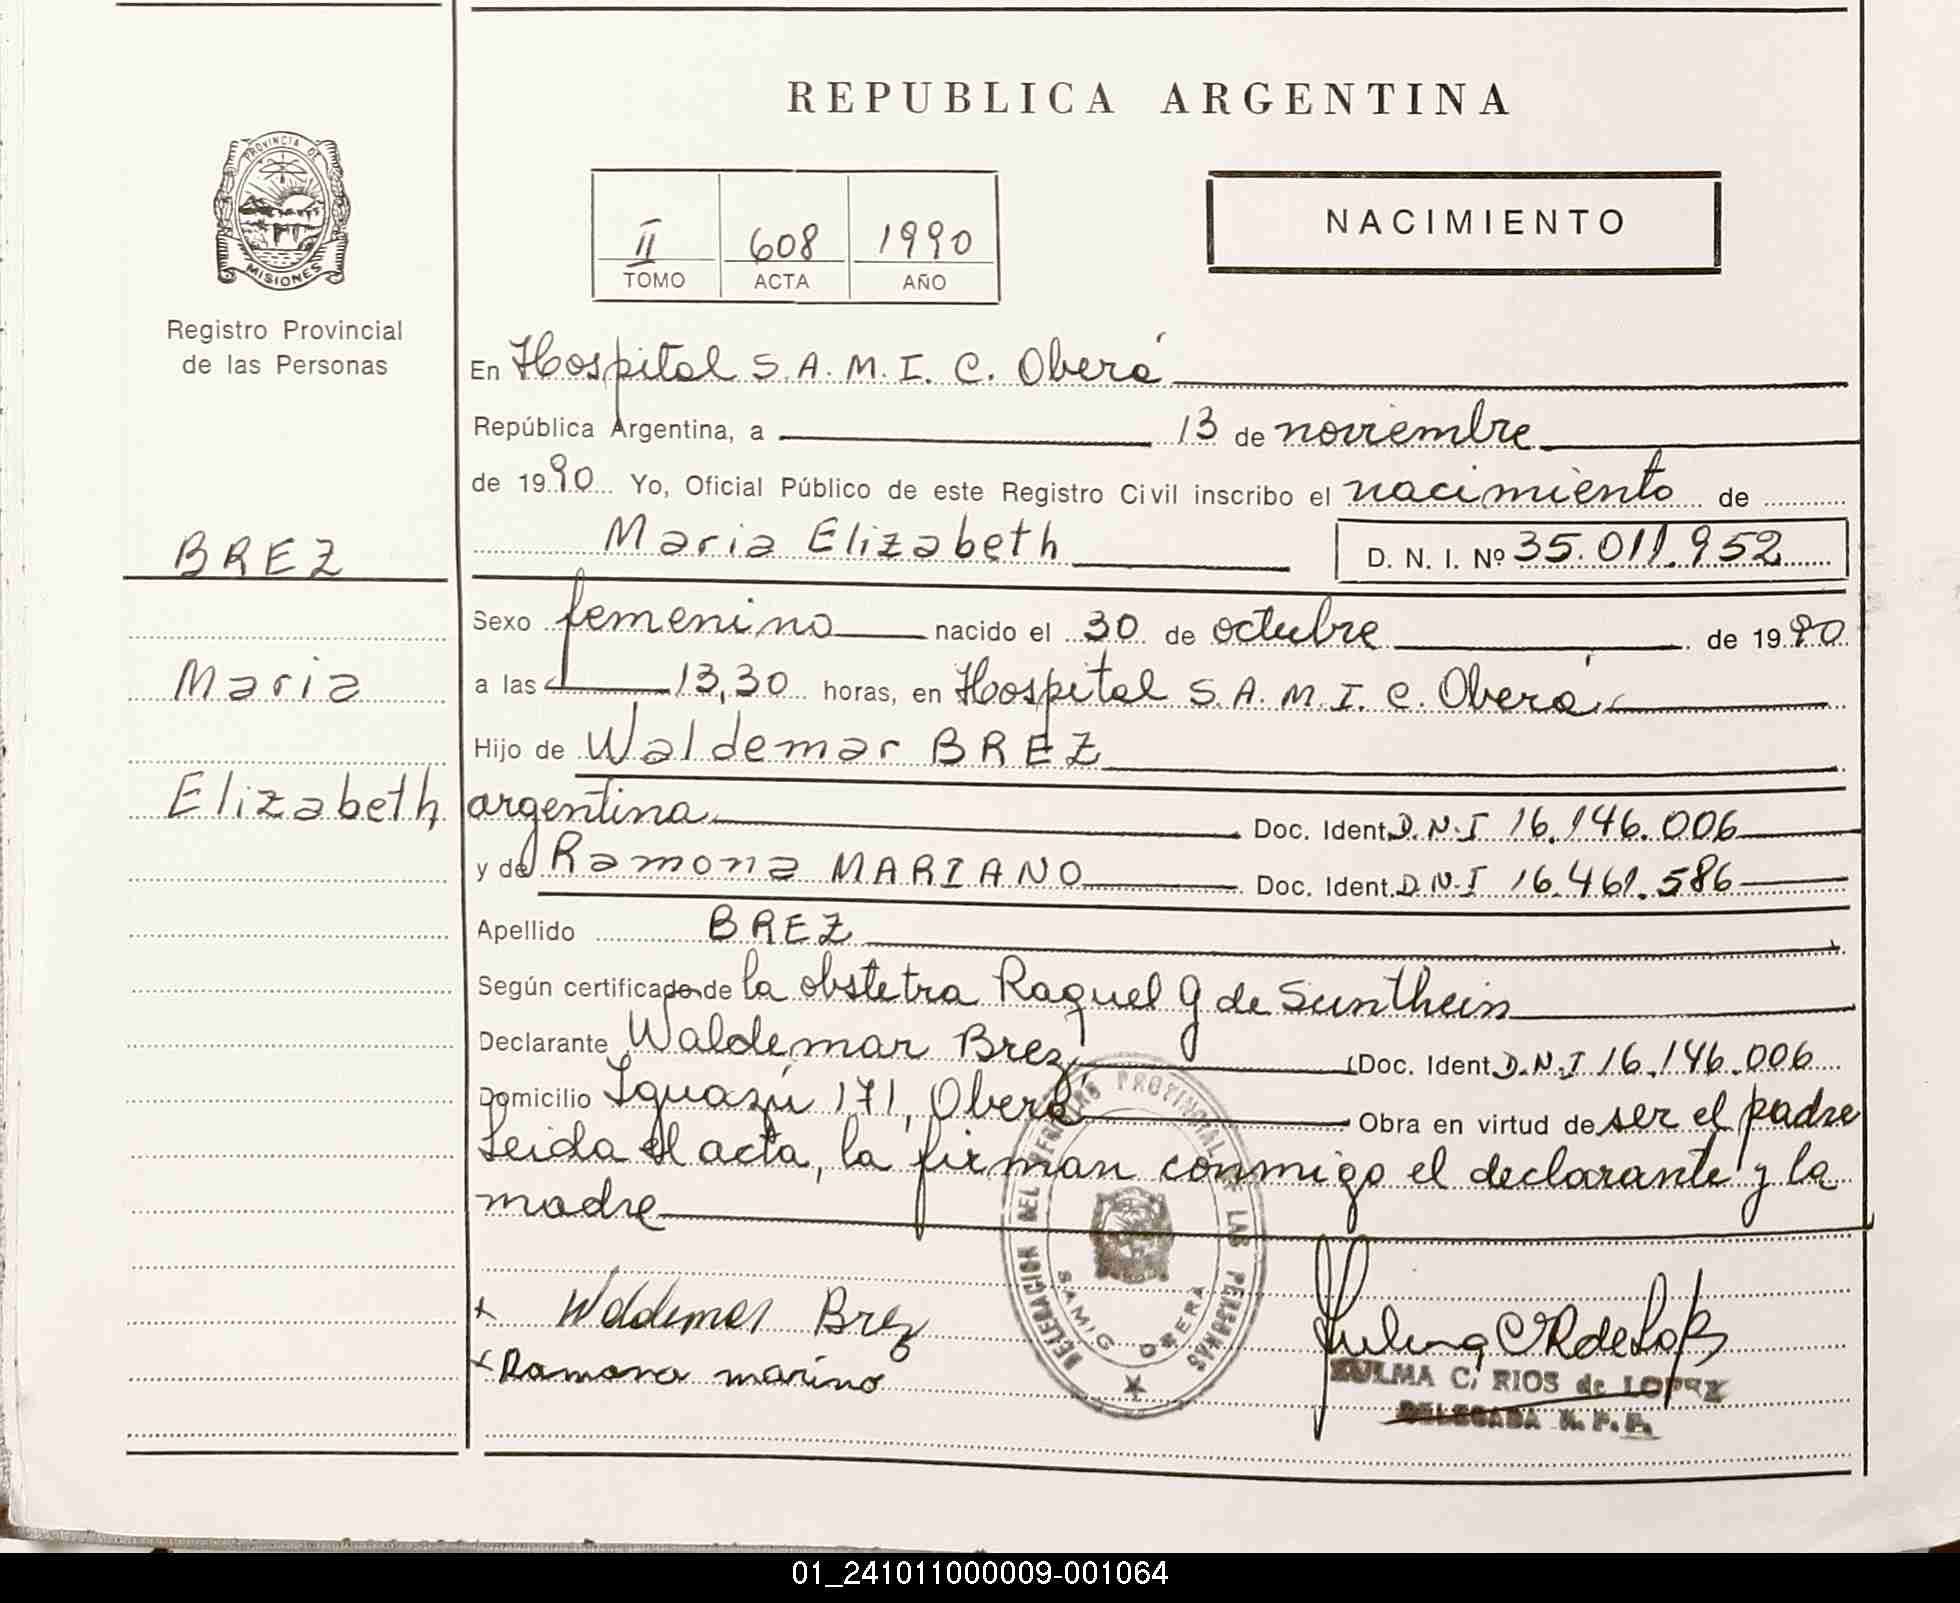 REPUBLICA ARGENTINA
PROVINCIA DE
MISIONES
Registro Provincial
de las Personas
II 608 1990
TOMO ACTA AÑO
NACIMIENTO
En Hospital S.A.M.I.C. Oberá
República Argentina, a 13 de noviembre
de 1990 Yo, Oficial Público de este Registro Civil inscribo el nacimiento de
BREZ
Maria
Elizabeth
Maria Elizabeth D. N. I. Nº 35.011.952
Sexo femenino nacido el 30 de octubre de 1990
a las 13,30 horas, en Hospital S.A.M.I.C. Oberá
Hijo de Waldemar BREZ
argentina Doc. Ident. D.N.I 16.146.006
y de Ramona MARIANO Doc. Ident. D.N.I 16.461.586
Apellido BREZ
Según certificado de la obstetra Raquel G de Sunthein
Declarante Waldemar Brez Doc. Ident. D.N.I 16.146.006
Domicilio Iguazú 171, Oberá Obra en virtud de ser el padre
Leida el acta, la firman conmigo el declarante y la
madre
x Waldemar Brez
x Ramona marino
DELEGACION DEL REGISTRO PROVINCIAL DE LAS PERSONAS
SAMIC OBERA
ZULMA C. RIOS de LOPEZ
DELEGADA R. P. P.
01_241011000009-001064